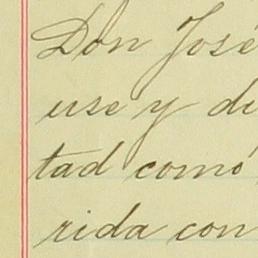 Don José
use y di
tad comó
rida con